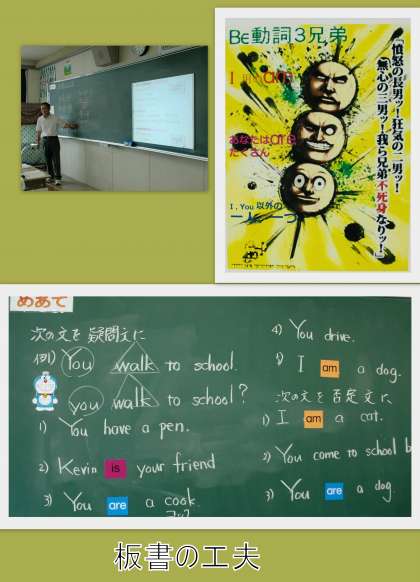 BE動詞3兄弟
「憤怒の長男ッ!狂気の二男ッ!
無心の三男ッ!我ら兄弟不死身なりッ!」
I am
あなたはare
たくさん
I, You 以外の
一人、一つ
めあて
次の文を疑問文に
例) You walk to school.
you walk to school?
1) You have a pen.
2) Kevin is your friend
3) You are a cook.
コック
4) You drive.
5) I am a dog.
次の文を否定文に
1) I am a cat.
2) You come to school b
3) You are a dog.
板書の工夫